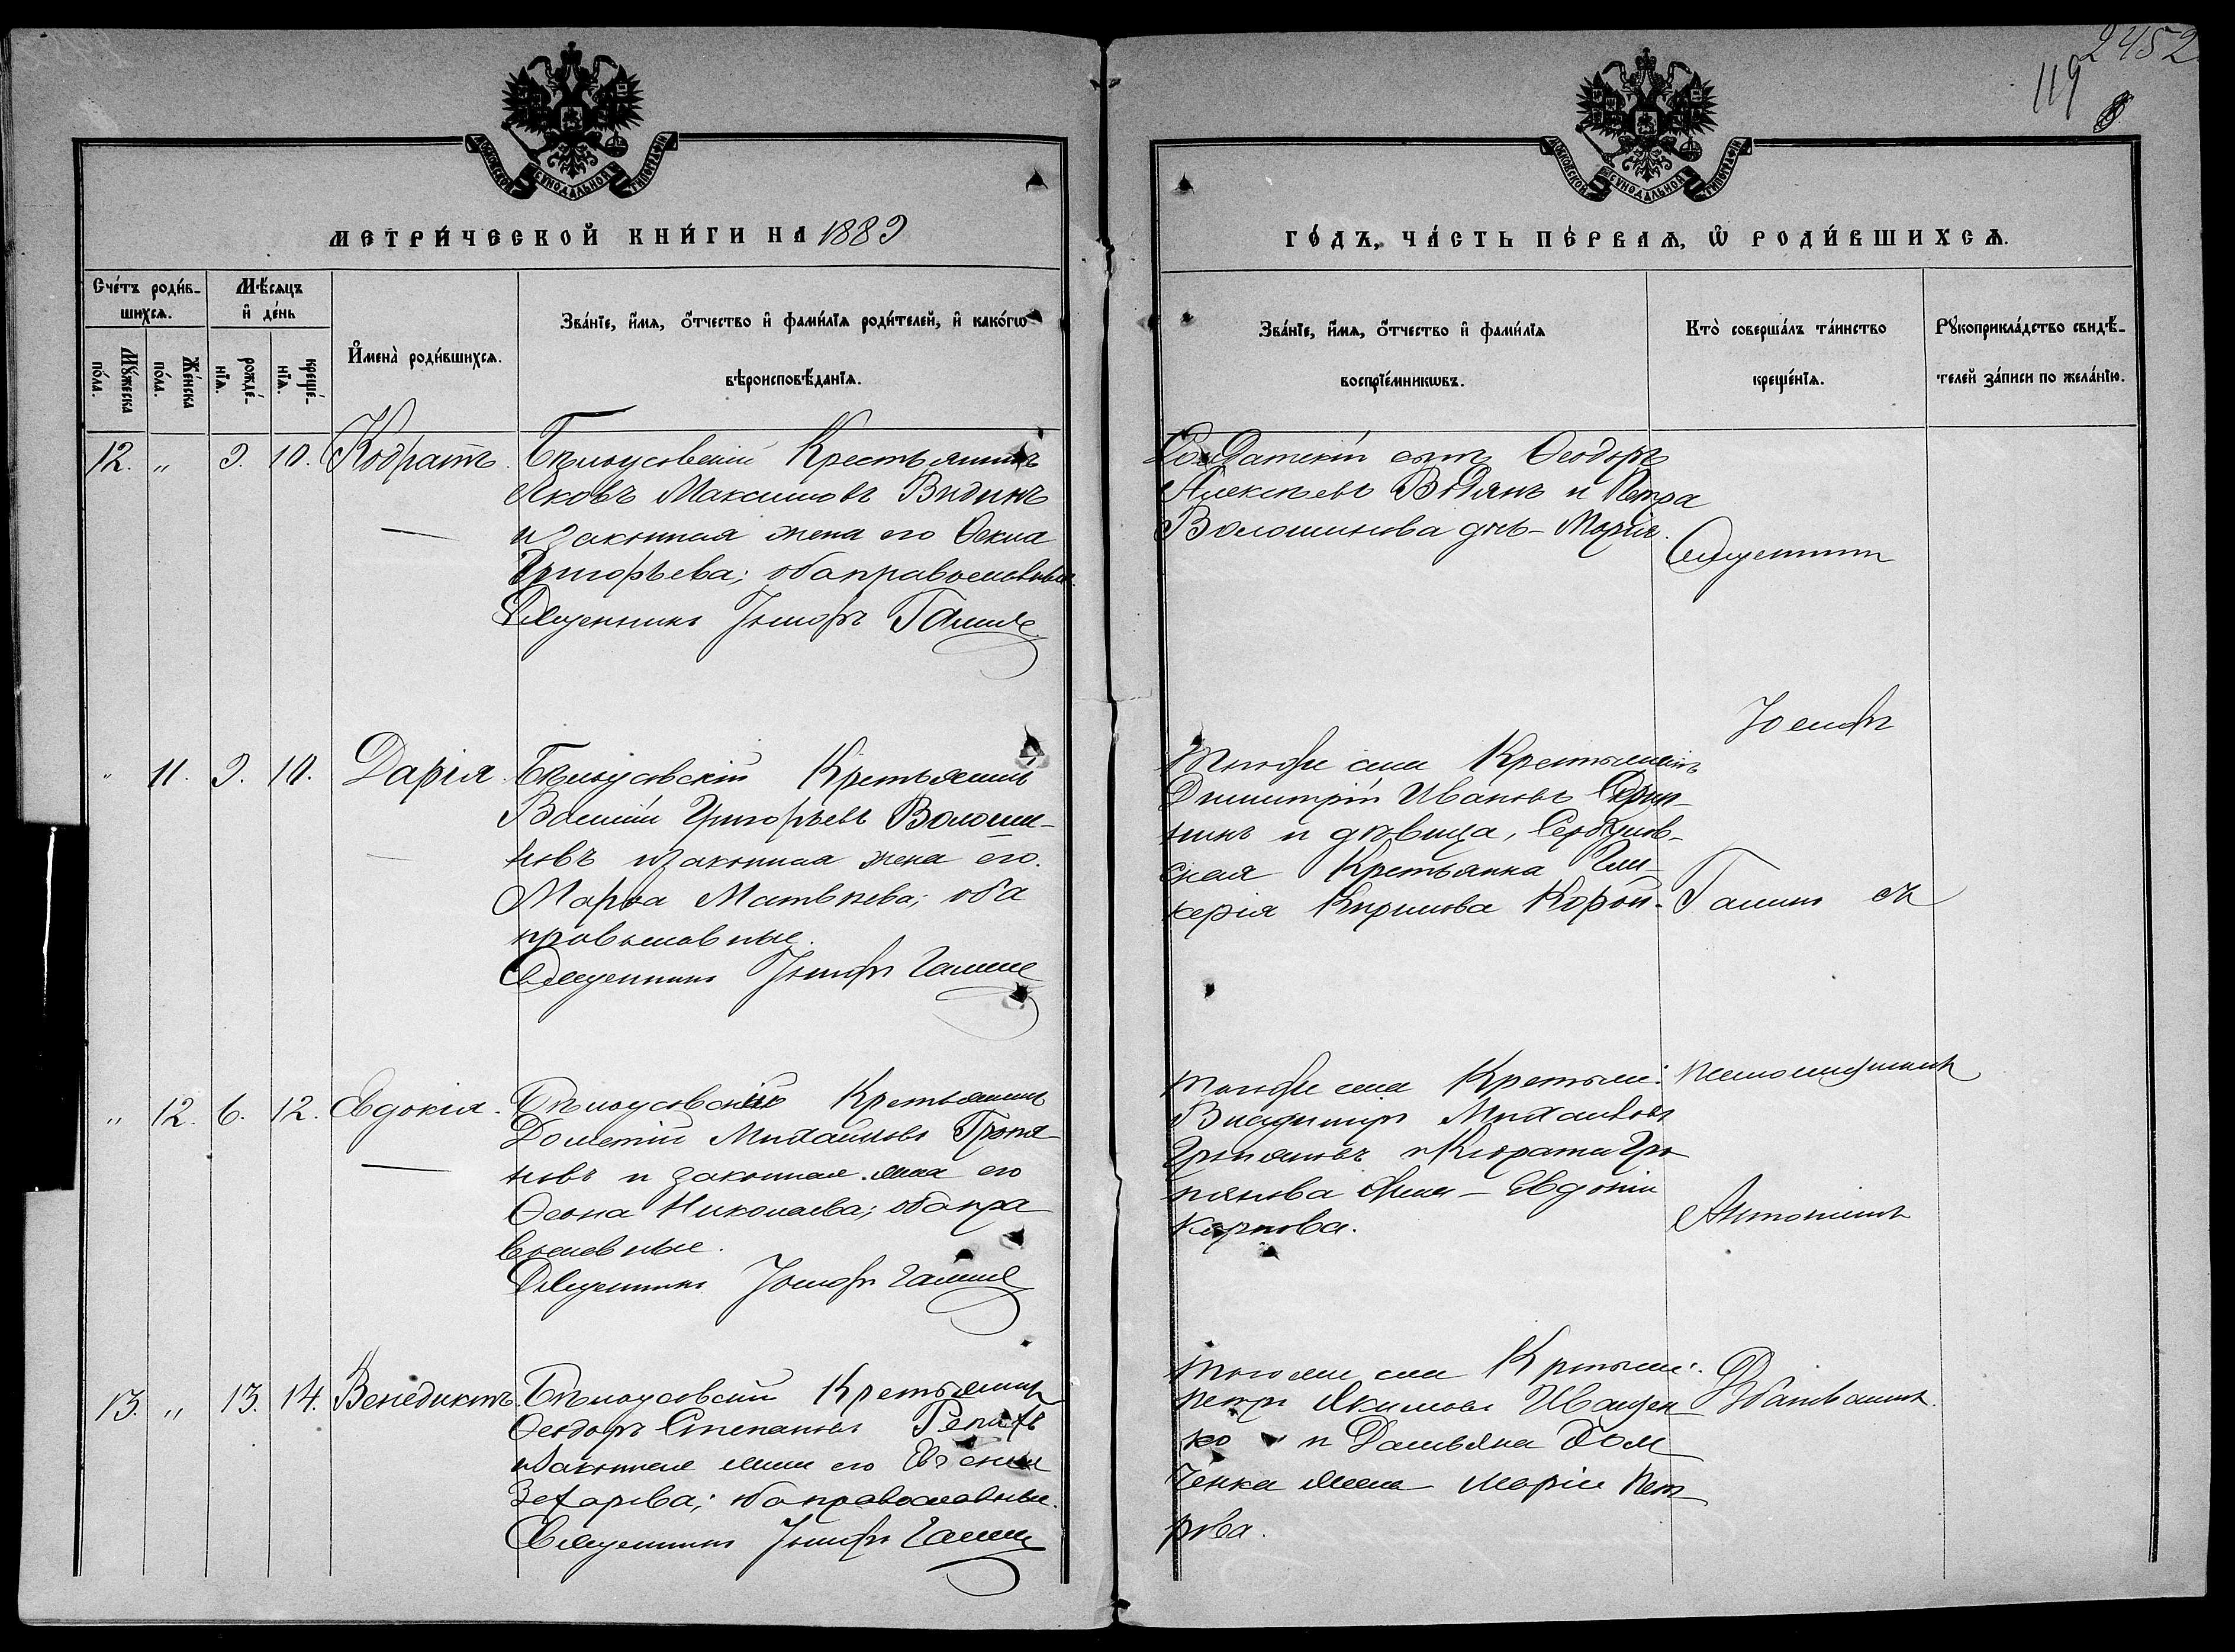 2452
119
МОСКОВСКОЙ СѴНОДАЛЬНОЙ ТИПОГРАФІИ
МОСКОВСКОЙ СѴНОДАЛЬНОЙ ТИПОГРАФІИ
МЕТРИ́ЧЕСКОЙ КНИ́ГИ НА 1889
ГО́ДЪ, ЧА́СТЬ ПЕ́РВАѦ, Ѡ҆ РОДИ́ВШИХСѦ.
Сче́тъ роди́в-
шихсѧ.
Мꙋ́жеска по́ла.
Же́нска по́ла.
Мѣ́сѧцъ
и҆ де́нь
рожде́-
нїѧ.
креще́-
нїѧ.
И҆мена̀ роди́вшихсѧ.
Зва́нїе, и҆́мѧ, ѻ҆́тчество и҆ фами́лїѧ роди́телей, и҆ како́гѡ
вѣроисповѣ́данїѧ.
Зва́нїе, и҆́мѧ, ѻ҆́тчество и҆ фами́лїѧ
воспрїе́мникѡвъ.
Кто̀ соверша́лъ та́инство
креще́нїѧ.
Рꙋкоприкла́дство свидѣ́-
телей за́писи по жела́нїю.
12. " 9. 10. Кодратъ. Бѣлоусовскій Крестьянинъ
Яковъ Максимовъ Видинъ
и законная жена его Ѳекла
Григорьева; оба православные.
Священникъ Іосифъ Галичъ
Солдатскій сынъ Ѳеодоръ
Алексѣевъ и Петра
Волошинова дочь - Марія.
Священникъ
Іосифъ
" 11. 9. 10. Дарія. Бѣлоусовскій Крестьянинъ
Василій Григорьевъ Волоши-
новъ и законная жена его
Марѳа Матвѣева; оба
православные.
Священникъ Іосифъ Галичъ
тогоже села Крестьянинъ
Димитрій Ивановъ
и дѣвица,
ская Крестьянка Гли-
керія Кирилова
Галичъ съ
" 12. 6. 12. Евдокія. Бѣлоусовскій Крестьянинъ
Дометій Михаиловъ
новъ и законная жена его
Николаева; оба пра
вославные.
Священникъ Іосифъ Галичъ
тогоже села Крестьян.
Владимиръ Михаиловъ
и Кодрата
жена - Евдокія
Карпова.
псаломщикомъ
Антониномъ
13. " 13. 14. Венедиктъ. Бѣлоусовскій Крестьянинъ
Ѳеодоръ Степановъ
и законная жена его
Захарьева; оба православные.
Священникъ Іосифъ Галичъ
тогоже села Крестьян.
Петръ Якимовъ Иващен
ко и Дамьяна
ченка жена Марія Пет
рова.